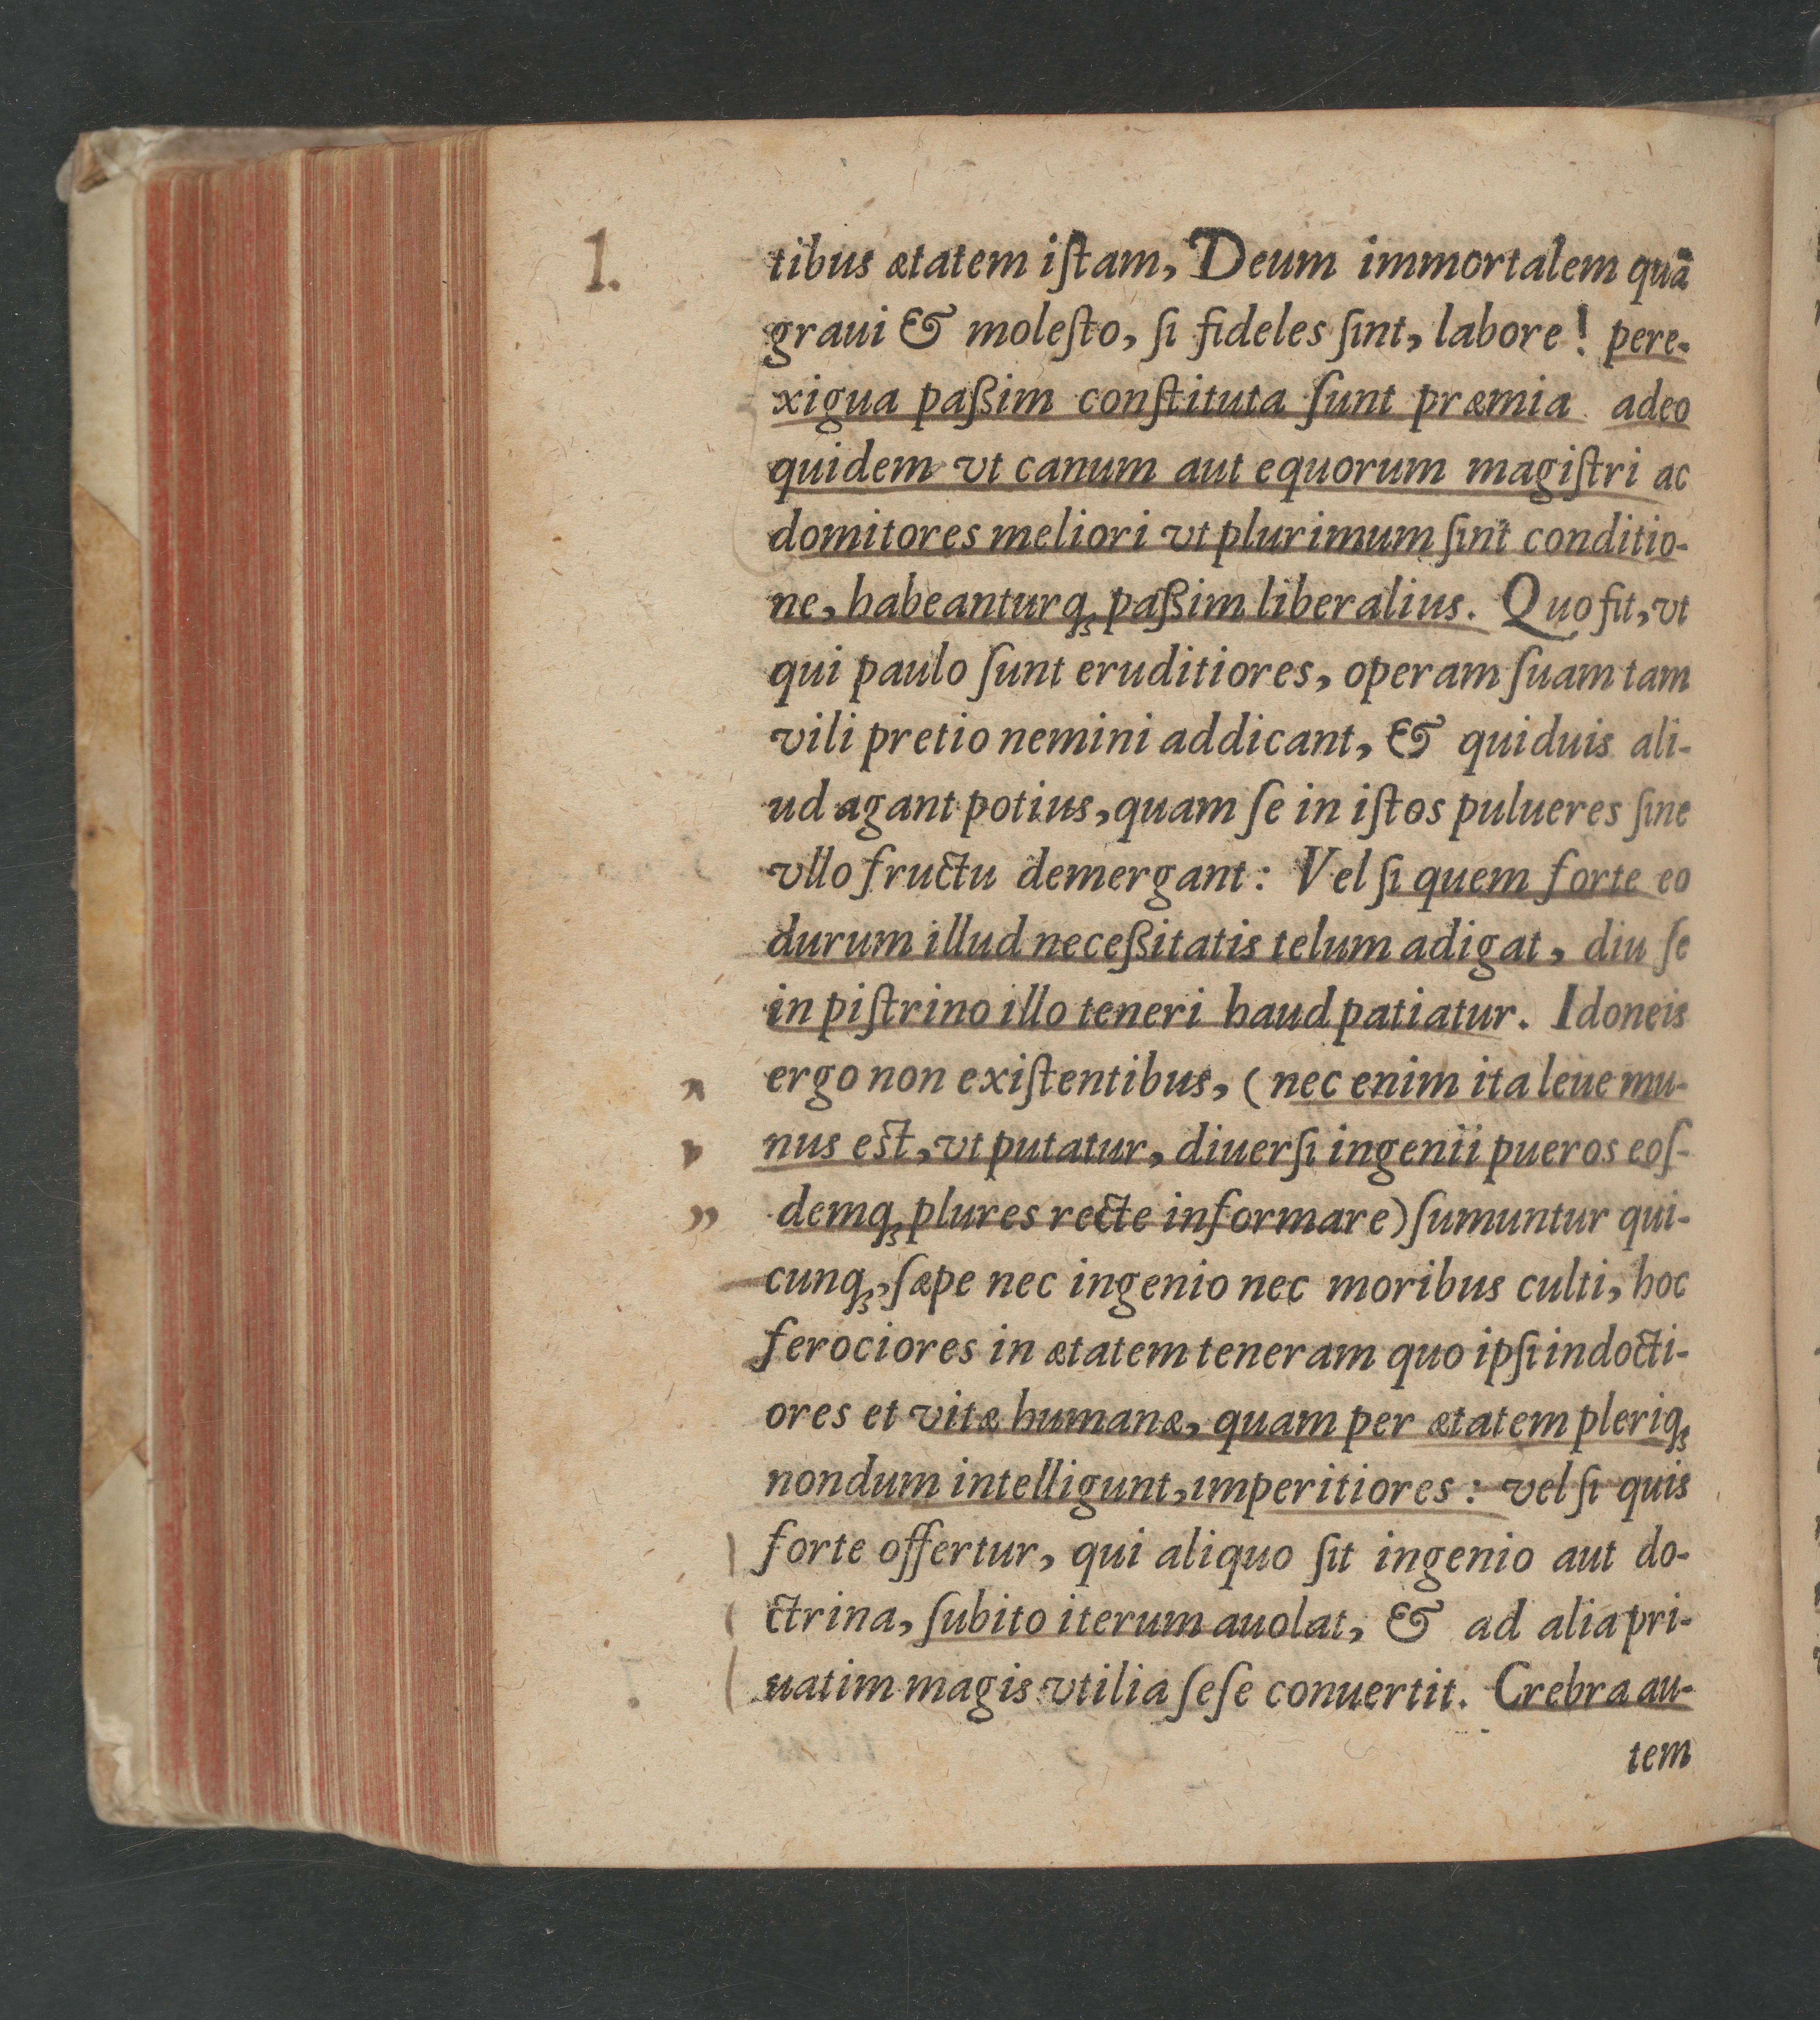 1.
tibus ætatem iſtam, Deum immortalem quã
graui & moleſto, ſi fideles ſint, labore! pere-
xigua paßim conſtituta ſunt præmia adeo
quidem vt canum aut equorum magiſtri ac
domitores meliori vt plurimum ſint conditio-
ne, habeanturq; paßim liberalius. Quo fit, vt
qui paulo ſunt eruditiores, operam ſuam tam
vili pretio nemini addicant, & quiduis ali-
ud agant potius, quam ſe in iſtos pulueres ſine
vllo fructu demergant: Vel ſi quem forte eo
durum illud neceßitatis telum adigat, diu ſe
in piſtrino illo teneri haud patiatur. Idoneis
ergo non exiſtentibus, (nec enim ita leue mu-
nus eſt, vt putatur, diuerſi ingenii pueros eoſ-
demq; plures recte informare) ſumuntur qui-
cunq;, ſæpe nec ingenio nec moribus culti, hoc
ferociores in ætatem teneram quo ipſi indocti-
ores et vitæ humanæ, quam per ætatem pleriq;
nondum intelligunt, imperitiores: vel ſi quis
forte offertur, qui aliquo ſit ingenio aut do-
ctrina, ſubito iterum auolat, & ad alia pri-
uatim magis vtilia ſeſe conuertit. Crebra au-
tem